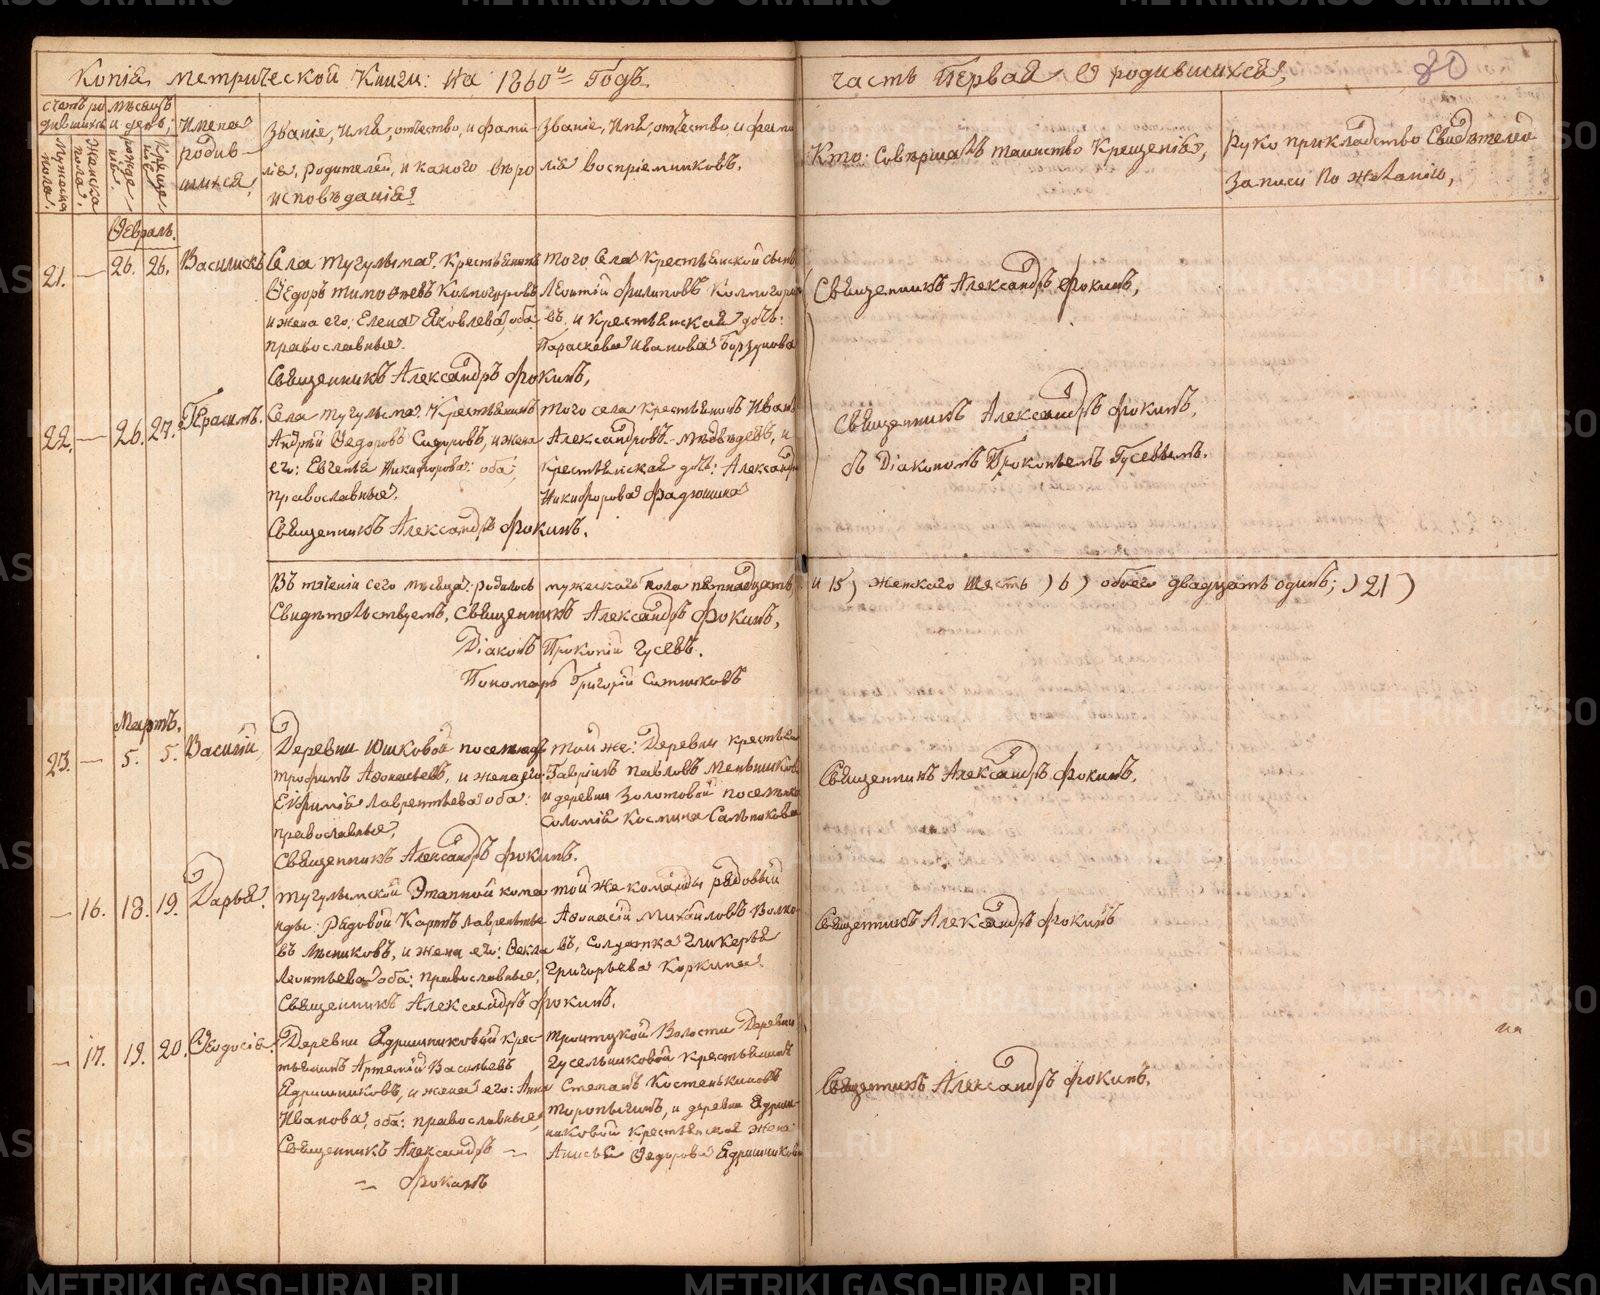 Копія метрической Книги: на 1860й Годъ.
часть Первая О родившихся,
80
счетъ родившихся
Мужеска пола,
Женска пола,
мѣсяцъ и день,
рождения,
крещения,
Имена родившихся,
Званіе, Имя, отчество, и фамилія, родителей, и какого вѣроисповѣданія?
Званіе, Имя, отчество и фамилія воспріемниковъ.
Кто: Совершалъ таинство Крещенія,
Рукоприкладство Свидѣтелей
Записи По желанію,
Февраль.
21. — 26. 26. Василискъ
Села Тугулыма. Крестьянинъ
Ѳедоръ тимоѳеевъ Колмогоровъ
и жена его: Елена Яковлева, оба
православные.
Священникъ Александръ Фокинъ,
того, Села Крестьянской сынъ
Леонтій Филиповъ Колмогоровъ, и Крестьянская дочь:
Параскева Иванова Борзунова
Священникъ Александръ Фокинъ,
22. — 26. 27. Герасимъ.
Села тугулыма. Крестьянинъ
Андрей Ѳедоровъ Сидоровъ, и жена
его: Евгенія Никифорова: оба,
православные.
Священникъ Александръ Фокинъ.
того села крестьянинъ Иванъ
Александровъ Медведевъ, и
Крестьянская дочь: Александра
Никифорова Фадюшина
Священникъ Александръ Фокинъ,
съ Діакономъ Прокопьемъ Гусевымъ.
Въ теченіи сего мѣсяца: родилось мужескаго пола пятнадцать и 15) женского Шесть )6) обоего двадцать одинъ; )21)
Свидѣтельствуемъ, Священникъ Александръ Фокинъ,
Діаконъ Прокопій Гусевъ.
Пономарь Григорій
Мартъ.
23. — 5. 5. Василій,
Деревни Юшковой
трофимъ Аѳонасьевъ, и жена его
Евфимія Лаврентьева оба:
православные,
Священникъ Александръ Фокинъ.
той же: Деревни крестьянинъ
Гаврилъ Павловъ Меньшиковъ
и деревни Золотовой
Соломія Космина
Священникъ Александръ Фокинъ.
— 16. 18. 19. Дарья.
тугулымской Этапной команды: Рядовой Карпъ Лаврентьевъ Мѣсниковъ, и жена его: Ѳекла
Леонтьева оба: православные,
Священникъ Александръ Фокинъ.
той же команды рядовый
Аѳонасій Михайловъ Волковъ, Солдатка Гликерья
Григорьева Коркина.
Священникъ Александръ Фокинъ
— 17. 19. 20. Ѳеодосія.
Деревни Ядрышниковой крестьянинъ Артемій Васильевъ
Ядрышниковъ, и жена его: Анна
Иванова, оба: православные,
Священникъ Александръ —
— Фокинъ
троитцкой Волости Деревни
Гусельниковой Крестьянинъ
Степанъ
и деревни Ядрышниковой крестьянская жена:
Анисья Ѳедорова Ядрышникова
Священникъ Александръ Фокинъ.
METRIKI.GASO-URAL.RU